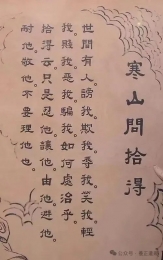 寒山問拾得
世間有人謗我。欺我。辱我。笑我。輕
我。賤我。惡我。騙我。如何處治乎。
拾得云。只是忍他。讓他。由他。避他。
耐他。敬他。不要理他也。
公众号